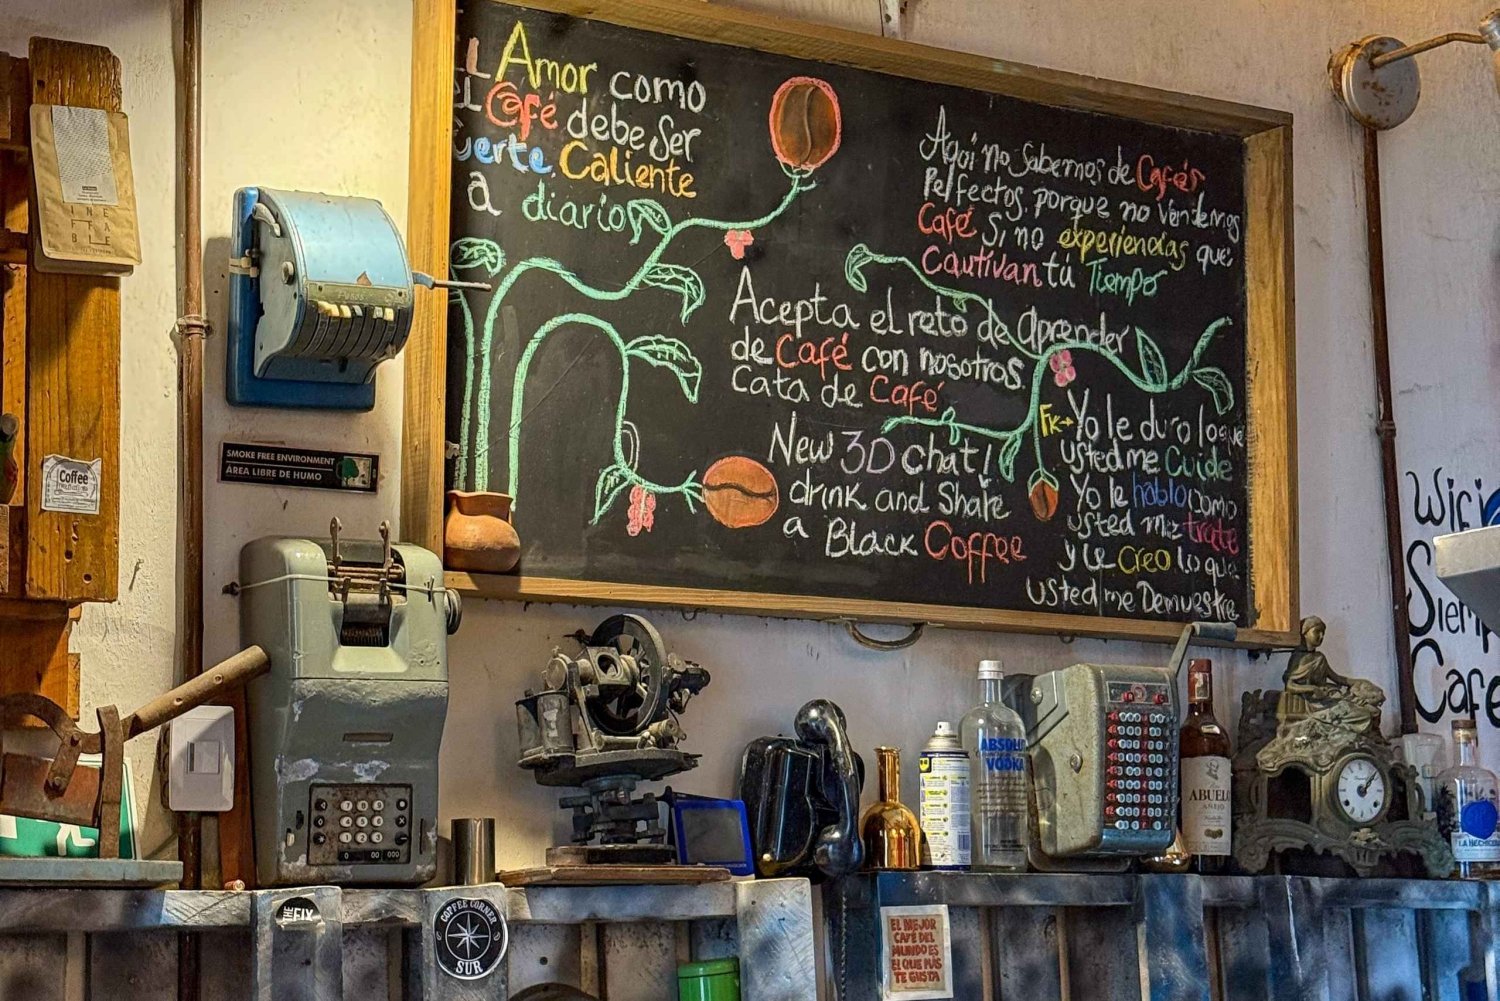 L Amor como
el Café debe ser
uerte, Caliente
a diario
Aqui no Sabemos de Cafés
Perfectos, porque no Vendemos
Café Si no experiencias que
Cautivan tú Tiempo
Acepta el reto de aprender
de Café con nosotros
Cata de Café
New 3D chat!
drink and Share
a Black Coffee
FK→ Yo le duro lo que
usted me Cuide
Yo le hablo como
usted me trate
y le Creo lo que
usted me Demuestre
INE
FF
ABLE
SMOKE FREE ENVIRONMENT
ÁREA LIBRE DE HUMO
Coffee
Wifi
Siemp
Café
ABSOLUT
VODKA
ABUELO
AÑEJO
LA HECHICERA
0 00 000
THE FIX
COFFEE CORNER
SUR
EL MEJOR
CAFÉ DEL
MUNDO ES
EL QUE MÁS
TE GUSTA